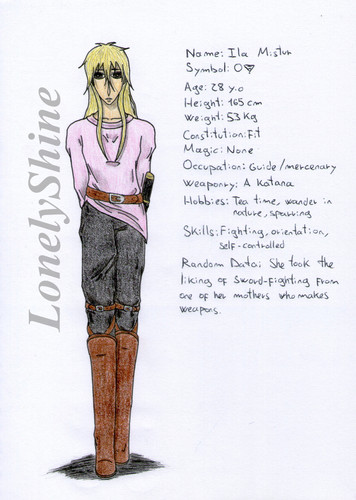 LonelyShine
Name: Ila Mistur
Symbol: O
Age: 28 y.o
Height: 165 cm
Weight: 53 Kg
Constitution: Fit
Magic: None
Occupation: Guide/mercenary
Weaponry: A Katana
Hobbies: Tea time, wander in
nature, sparring
Skills: Fighting, orientation,
self-controlled
Random Data: She took the
liking of sword-fighting from
one of her mothers who makes
weapons.